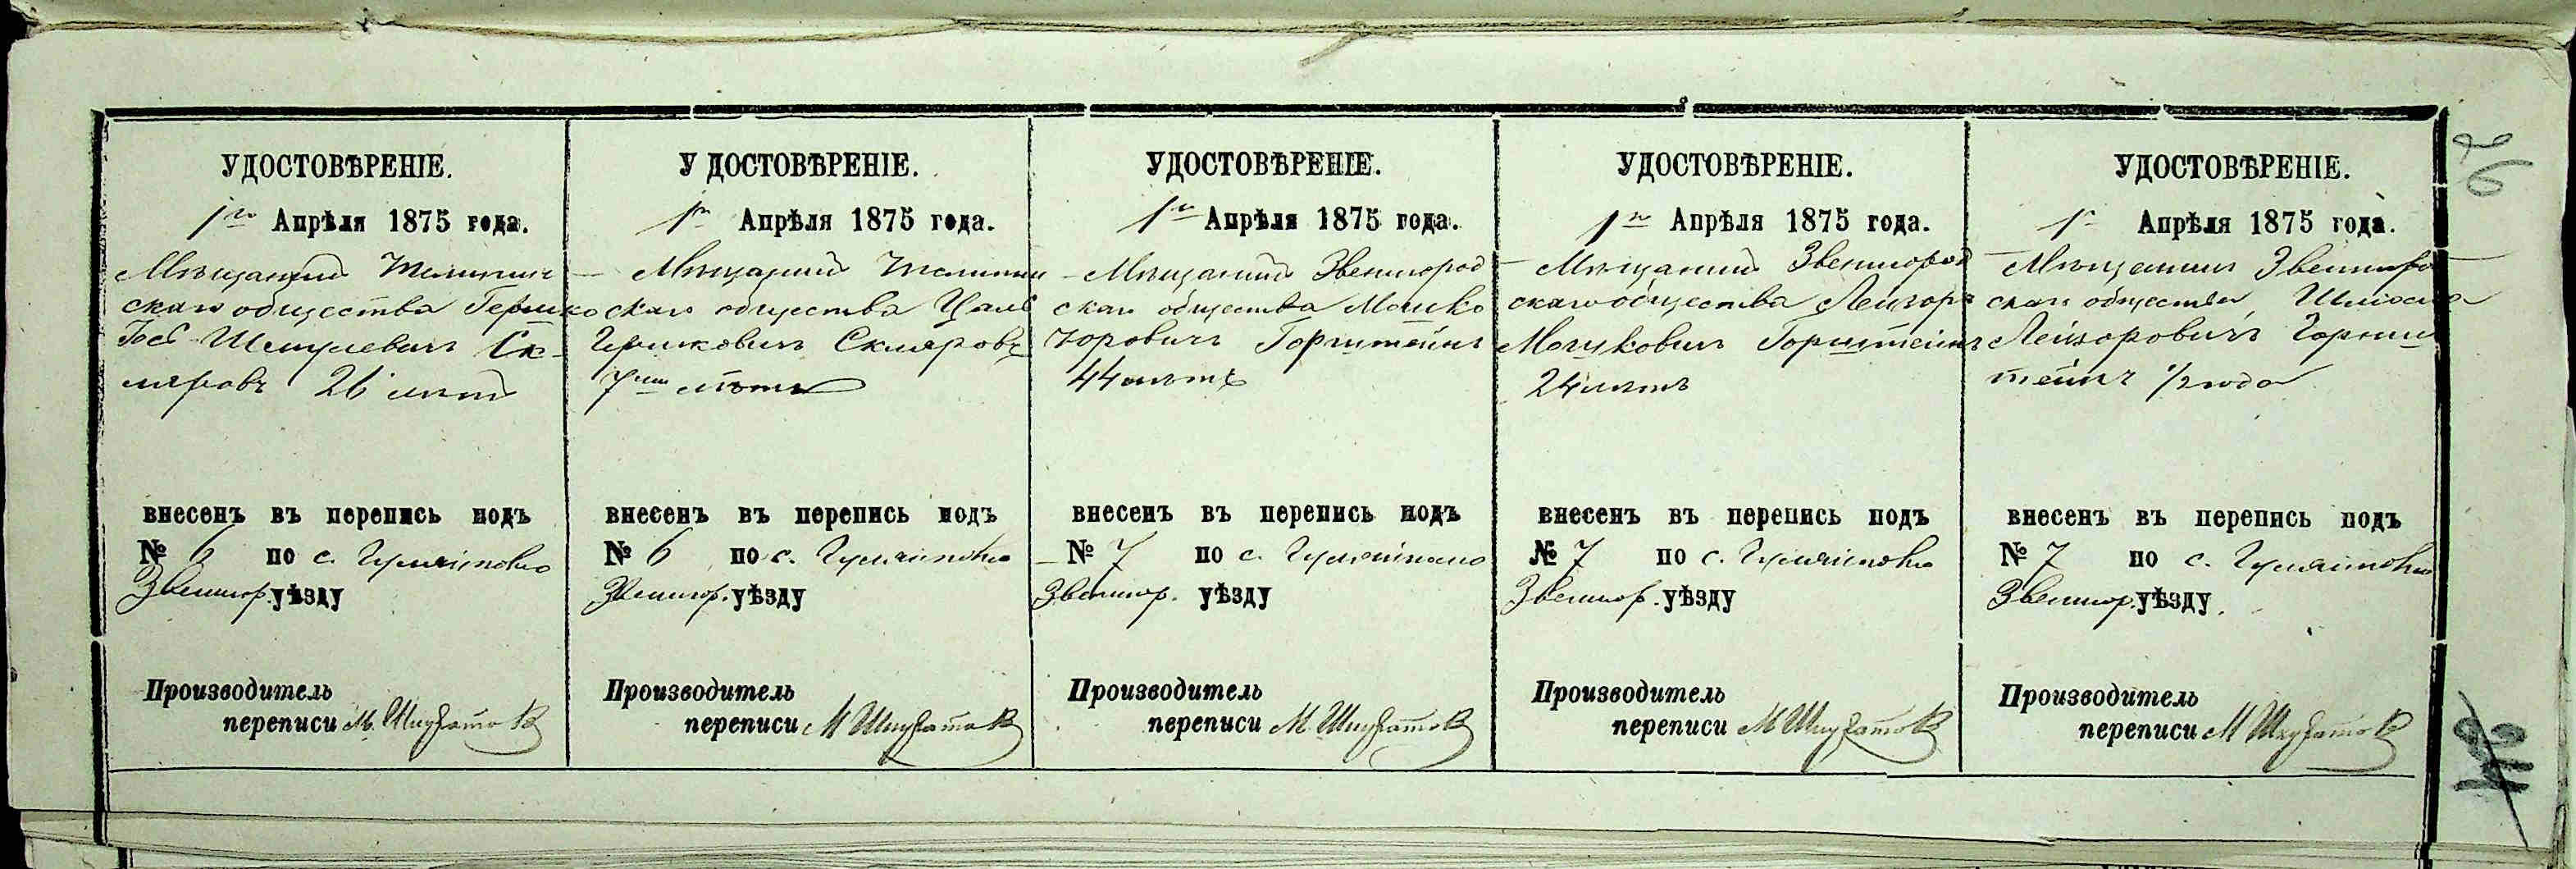 УДОСТОВѢРЕНІЕ.
1го Апрѣля 1875 года.
Мѣщанинъ
скаго общества Гершко
Шмулевичъ Ск-
ляровъ 26 лѣтъ
внесенъ въ перепись подъ
№ 6 по с.
Звенигор. уѣзду
Производитель
переписи М.
У ДОСТОВѢРЕНІЕ.
1го Апрѣля 1875 года.
Мѣщанинъ
скаго общества
Гершковичъ Скляровъ
7ми лѣтъ
внесенъ въ перепись подъ
№ 6 по с.
Звенигор. уѣзду
Производитель
переписи М
УДОСТОВѢРЕНІЕ.
1го Апрѣля 1875 года.
Мѣщанинъ Звенигород
скаго общества Мошко
Горштейнъ
44 лѣтъ
внесенъ въ перепись подъ
№ 7 по с.
Звенигор. уѣзду
Производитель
переписи М
УДОСТОВѢРЕНІЕ.
1го Апрѣля 1875 года.
Мѣщанинъ Звенигород
скаго общества Лейзоръ
Мошковичъ Горштейнъ
24 лѣтъ
внесенъ въ перепись подъ
№ 7 по с.
Звенигор. уѣзду
Производитель
переписи М
УДОСТОВѢРЕНІЕ.
1го Апрѣля 1875 года.
Мѣщанинъ Звенигоро
скаго общества
Лейзоровичъ Горш
тейнъ 1/2 года
внесенъ въ перепись подъ
№ 7 по с.
Звенигор. уѣзду.
Производитель
переписи М
26